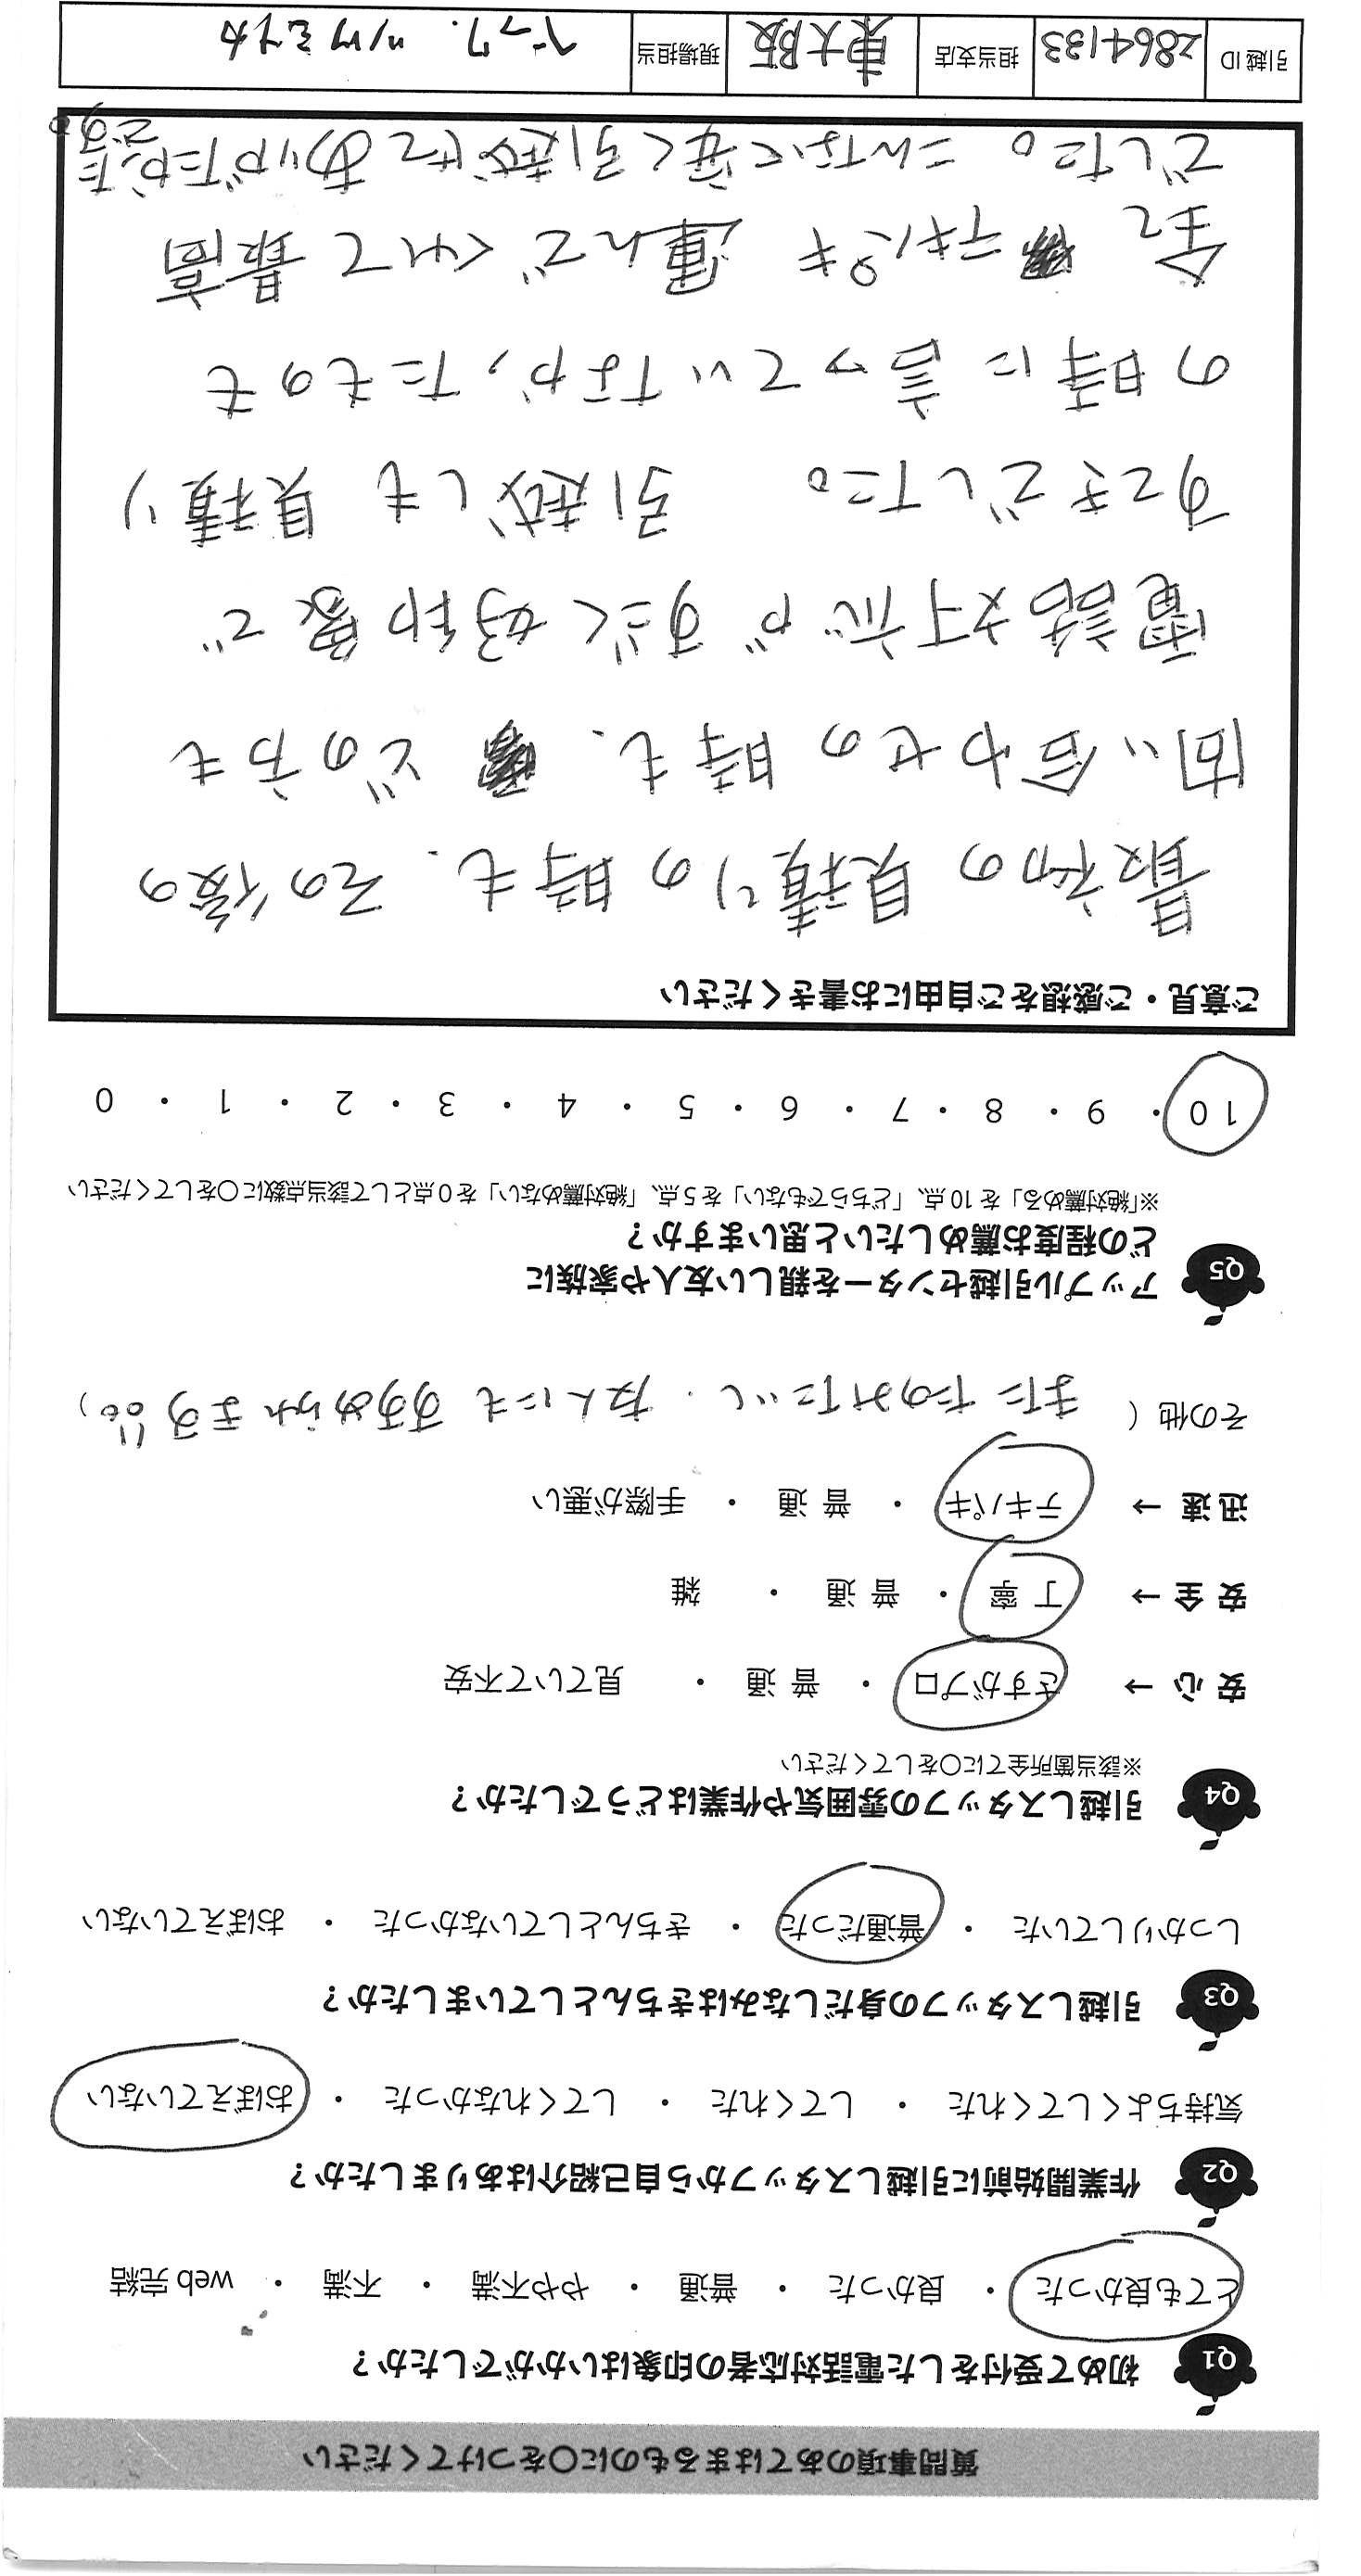 質問事項のあてはまるものに〇をつけてください
Q1 初めて受付をした電話対応者の印象はいかがでしたか？
とても良かった ・ 良かった ・ 普通 ・ やや不満 ・ 不満 ・ web 完結
Q2 作業開始前に引越しスタッフから自己紹介はありましたか？
気持ちよくしてくれた ・ してくれた ・ してくれなかった ・ おぼえていない
Q3 引越しスタッフの身だしなみはきちんとしていましたか？
しっかりしていた ・ 普通だった ・ きちんとしていなかった ・ おぼえていない
Q4 引越しスタッフの雰囲気や作業はどうでしたか？
※該当箇所全てに〇をしてください
安 心 → さすがプロ ・ 普 通 ・ 見ていて不安
安 全 → 丁 寧 ・ 普 通 ・ 雑
迅 速 → テキパキ ・ 普 通 ・ 手際が悪い
その他（ またたのみたいし、友人にもすすめられます!! ）
Q5 アップル引越センターを親しい友人や家族に
どの程度お薦めしたいと思いますか？
※「絶対薦める」を 10 点、「どちらでもない」を 5 点、「絶対薦めない」を 0 点として該当点数に〇をしてください
10 ・ 9 ・ 8 ・ 7 ・ 6 ・ 5 ・ 4 ・ 3 ・ 2 ・ 1 ・ 0
ご意見・ご感想をご自由にお書きください
最初の見積りの時も、その後の
問い合わせの時も、どの方も
電話対応がすごく好印象で
すてきでした。 引越しも見積り
の時に言っていなかったものも
全てテキパキ運んでくれて最高
でした。こんなに安く引越せてありがたかったです。
引越 ID 2864133 担当支店 東大阪 現場担当